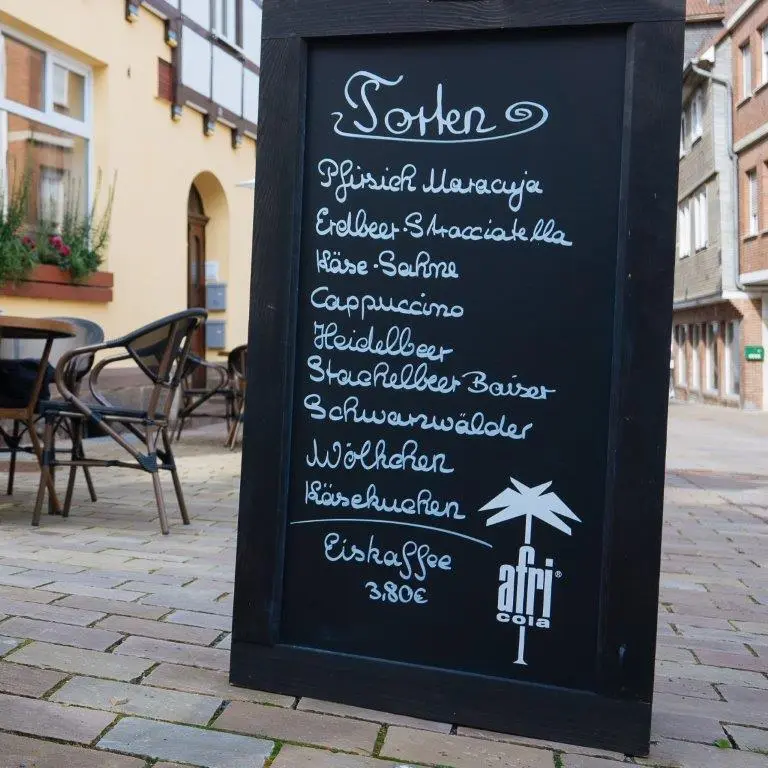 Torten
Pfirsich Maracuja
Erdbeer-Stracciatella
Käse-Sahne
Cappuccino
Heidelbeer
Stachelbeer Baiser
Schwarzwälder
Wölkchen
Käsekuchen
Eiskaffee
3,80€
afri®
cola